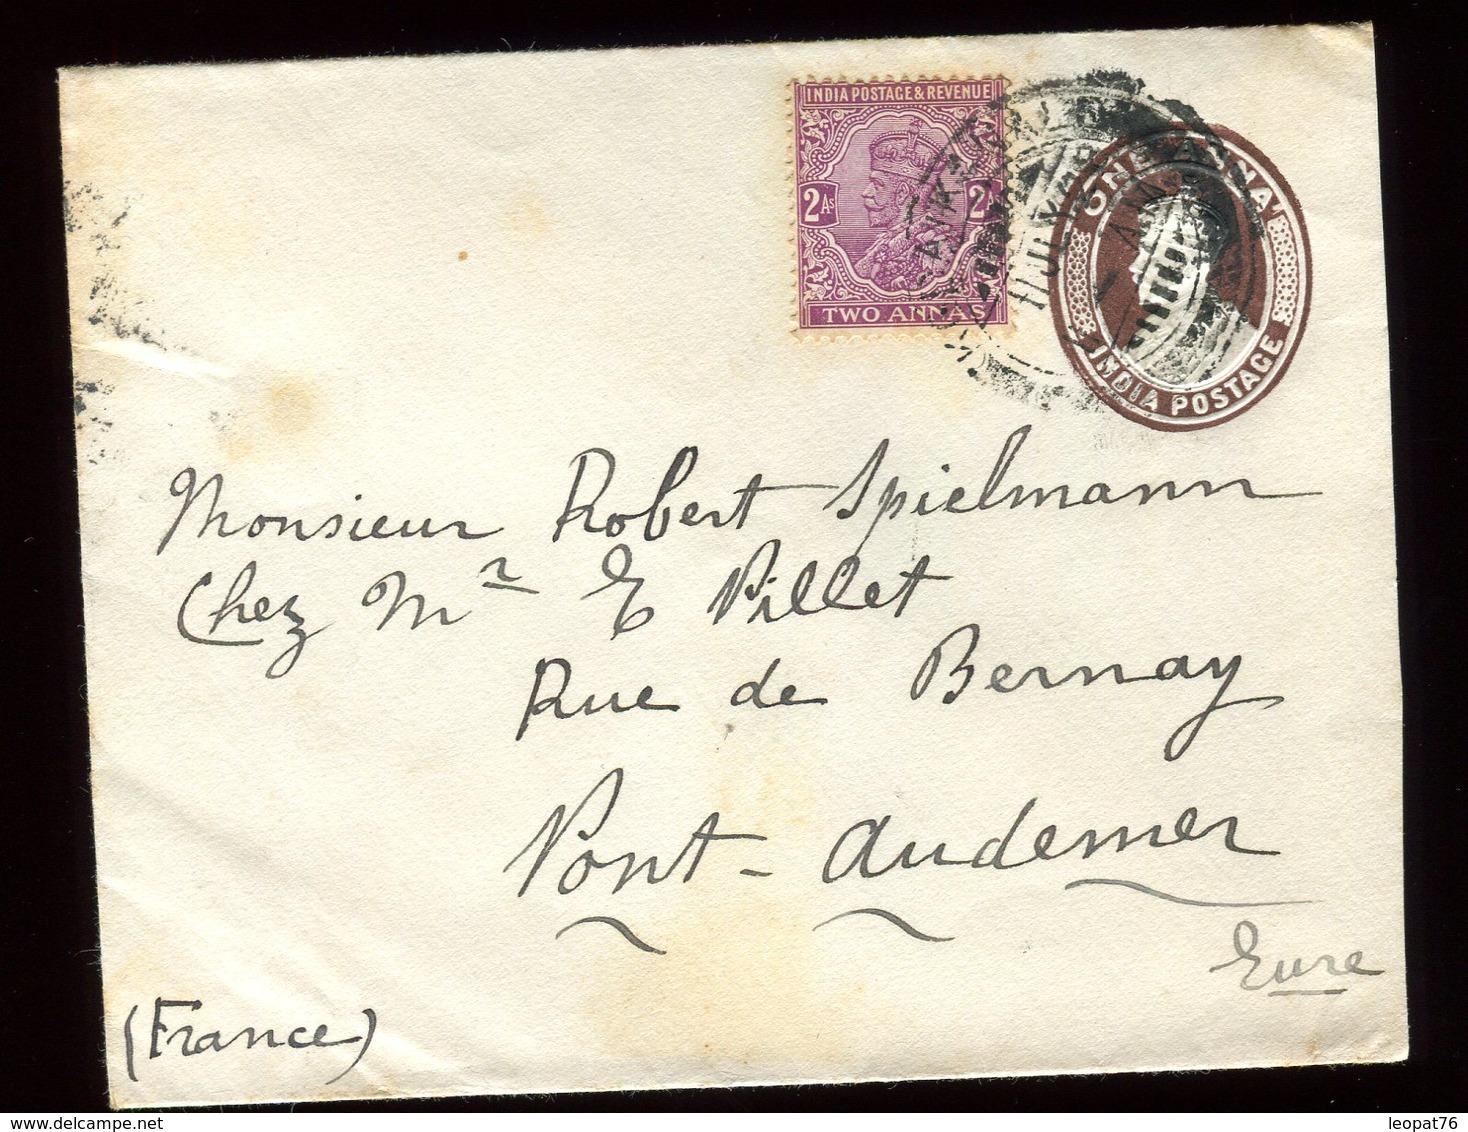 INDIA POSTAGE & REVENUE
2 As
2 As
TWO ANNAS
ONE ANNA
INDIA POSTAGE
Monsieur Robert Spielmann
Chez Mr E Pillet
Rue de Bernay
Pont-Audemer
Eure
(France)
leopat76